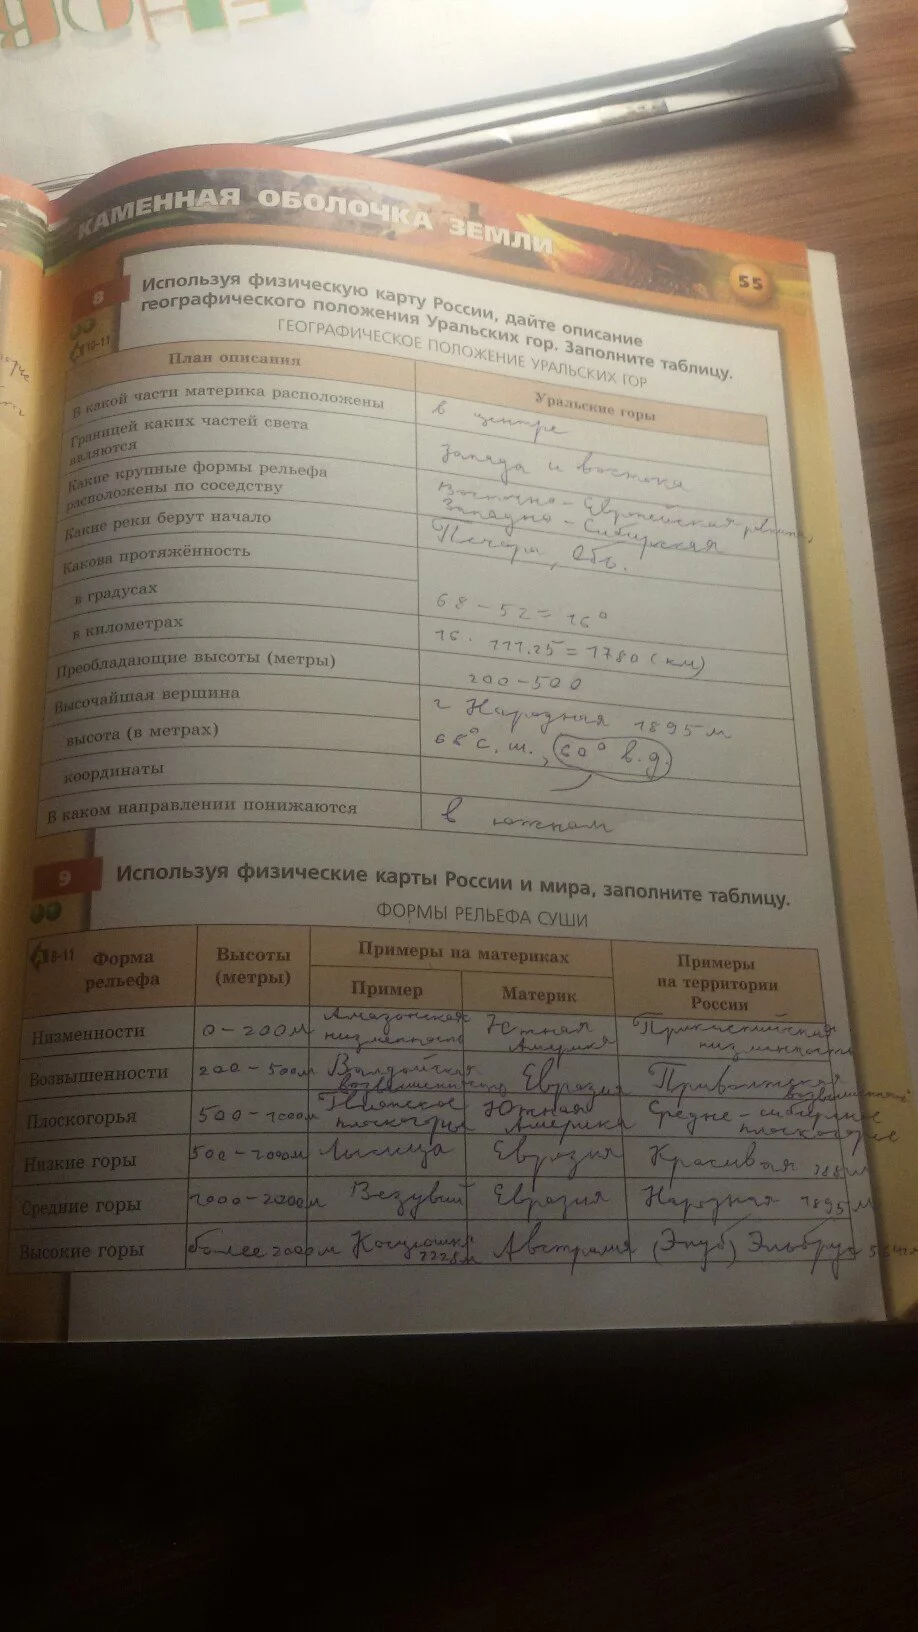 КАМЕННАЯ ОБОЛОЧКА ЗЕМЛИ
55
8
Используя физическую карту России, дайте описание
географического положения Уральских гор. Заполните таблицу.
10-11
ГЕОГРАФИЧЕСКОЕ ПОЛОЖЕНИЕ УРАЛЬСКИХ ГОР
План описания
Уральские горы
В какой части материка расположены
в центре
Границей каких частей света
являются
Запада и востока
Какие крупные формы рельефа
расположены по соседству
Восточно-Европейская равнина,
Западно-Сибирская
Какие реки берут начало
Печора, Обь.
Какова протяжённость
в градусах
68-52=16°
в километрах
16 · 111.25=1780 (км)
Преобладающие высоты (метры)
200-500
Высочайшая вершина
г Народная 1895м
высота (в метрах)
68°с.ш., 60° в.д.
координаты
В каком направлении понижаются
в южном
9
Используя физические карты России и мира, заполните таблицу.
ФОРМЫ РЕЛЬЕФА СУШИ
8-11
Форма
рельефа
Высоты
(метры)
Примеры на материках
Пример
Материк
Примеры
на территории
России
Низменности
0-200м
Амазонская
низменность
Южная
Америка
Прикаспийская
низменность
Возвышенности
200-500м
Валдайская
Евразия
Приволжская
возвышенность
Плоскогорья
500-1000м
плоскогорья
Южная
Америка
Средне-сибирское
плоскогорие
Низкие горы
500-1000м
Лысица
Евразия
Красивая
Средние горы
1000-2000м
Везувий
Евразия
Народная 1895м
Высокие горы
более 2000м
Косцюшко
2228м
Австралия
Эльбрус